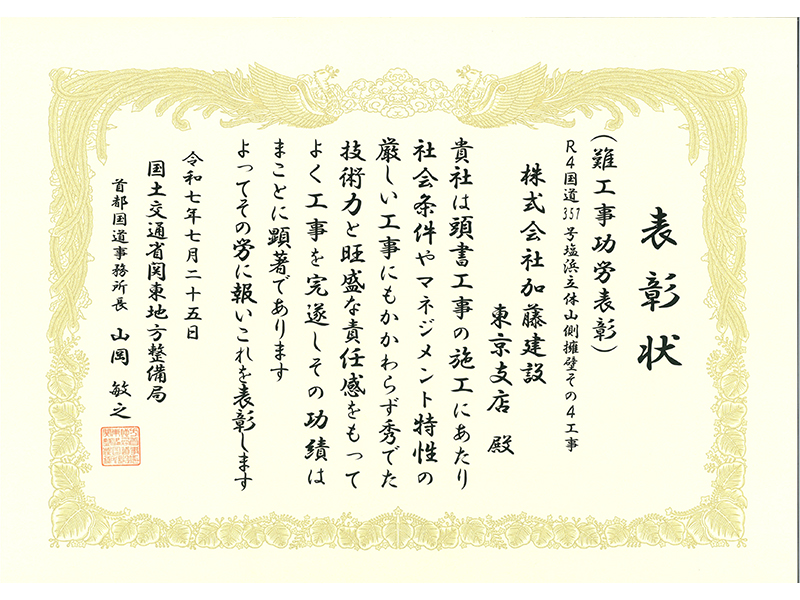 表彰状
（難工事功労表彰）
R４国道３５７号塩浜立体山側擁壁その４工事
株式会社加藤建設
東京支店　殿
貴社は頭書工事の施工にあたり
社会条件やマネジメント特性の
厳しい工事にもかかわらず秀でた
技術力と旺盛な責任感をもって
よく工事を完遂しその功績は
まことに顕著であります
よってその労に報いこれを表彰します
令和七年七月二十五日
国土交通省関東地方整備局
首都国道事務所長　山岡　敏之